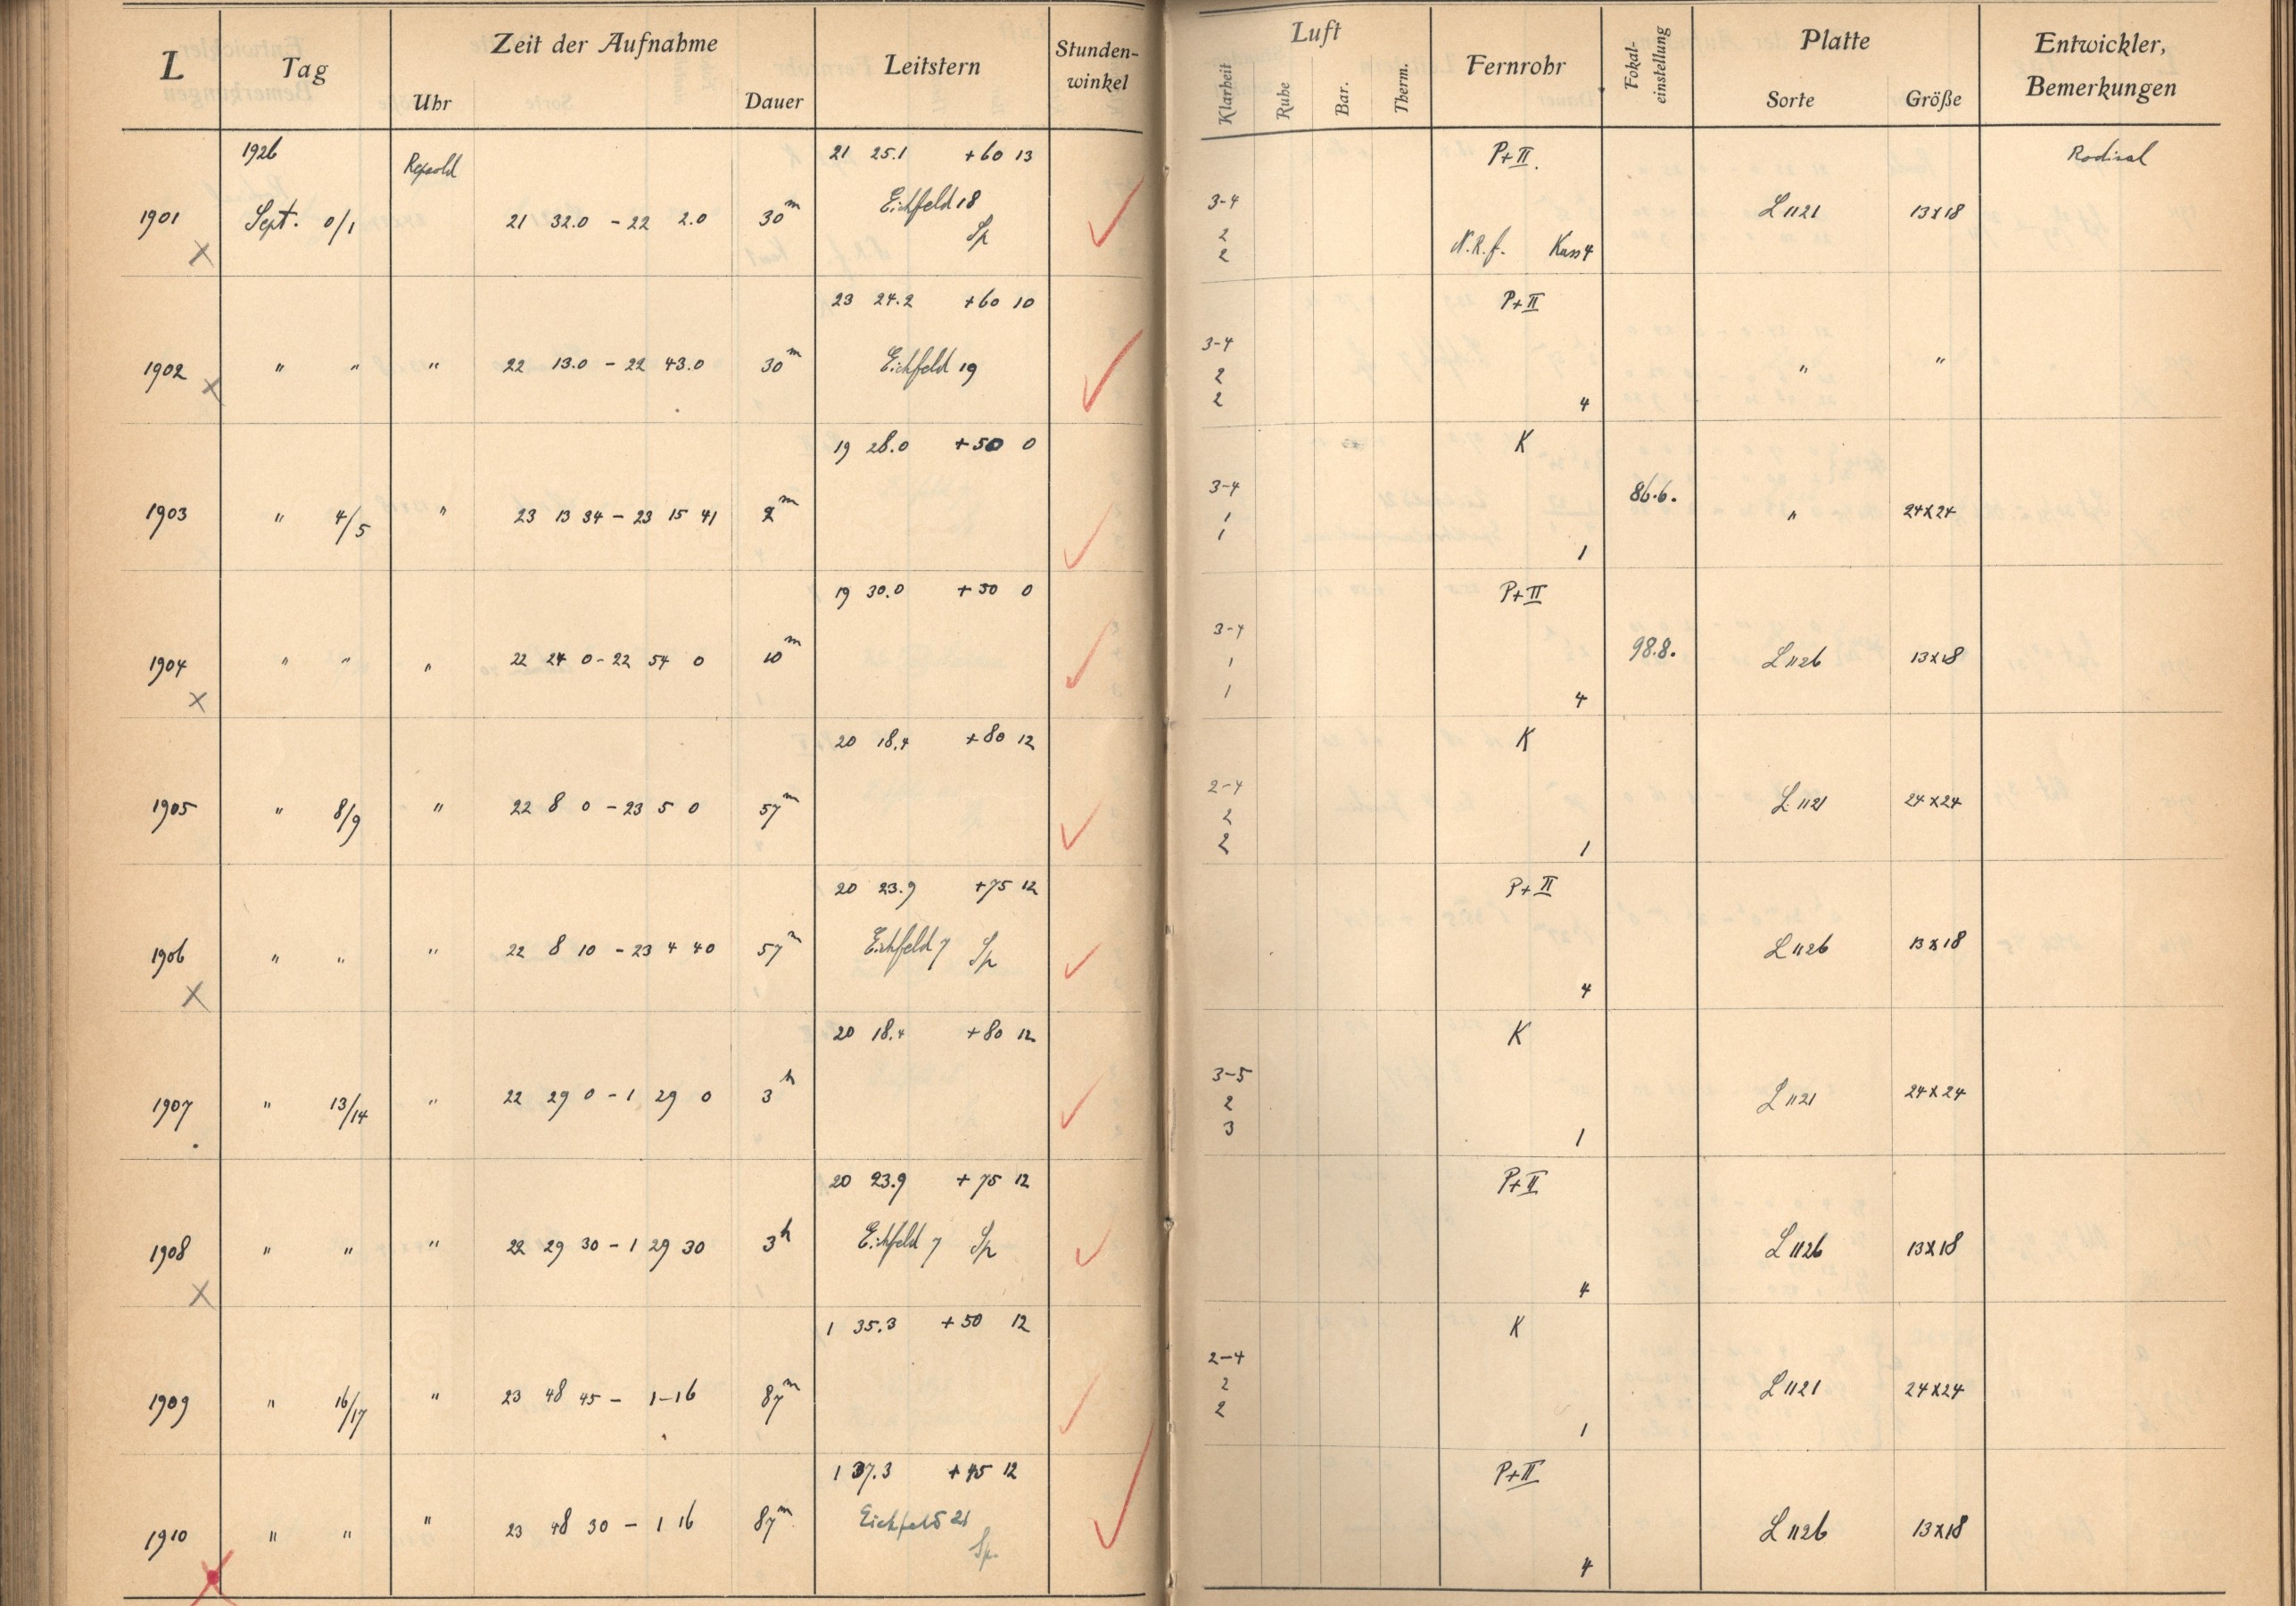 L Tag Zeit der Aufnahme Leitstern Stunden-
winkel Luft Fernrohr Fokal-
einstellung Platte Entwickler,
Bemerkungen
Uhr Dauer Klarheit Ruhe Bar. Therm. Sorte Größe
1926 Repsold 21 25.1 +60 13 P+II. Rodinal
1901 Sept. 0/1 21 32.0 - 22 2.0 30m Eichfeld 18 3-4 L 1121 13x18
Sp 2 N.R.f. Kass 4
2
23 24.2 +60 10 P+II
1902 " " " 22 13.0 - 22 43.0 30m Eichfeld 19 3-4 " "
2
2 4
19 28.0 +50 0 K
1903 " 4/5 " 23 13 34 - 23 15 41 2m 3-4 86.6. " 24x24
1
1 1
19 30.0 +50 0 P+II
1904 " " " 22 24 0 - 22 54 0 10m 3-4 98.8. L 1126 13x18
1
1 4
20 18.4 +80 12 K
1905 " 8/9 " 22 8 0 - 23 5 0 57m 2-4 L 1121 24x24
2
2 1
20 23.9 +75 12 P+II
1906 " " " 22 8 10 - 23 4 40 57m Eichfeld 7 Sp L 1126 13x18
4
20 18.4 +80 12 K
1907 " 13/14 " 22 29 0 - 1 29 0 3h 3-5 L 1121 24x24
2
3 1
20 23.9 +75 12 P+II
1908 " " " 22 29 30 - 1 29 30 3h Eichfeld 7 Sp L 1126 13x18
4
1 35.3 +50 12 K
1909 " 16/17 " 23 48 45 - 1-16 87m 2-4 L 1121 24x24
2
2 1
1 37.3 +45 12 P+II
1910 " " " 23 48 30 - 1 16 87m Eichfeld 21 L 1126 13x18
Sp. 4